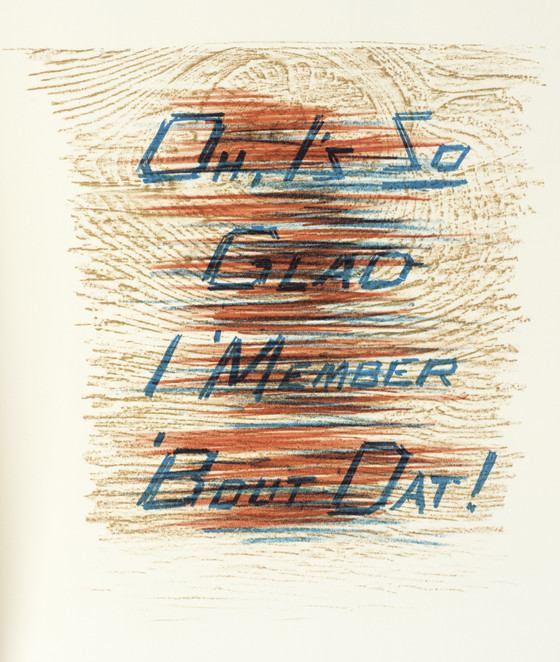 Oh, I's So
Glad
I 'Member
'Bout Dat!